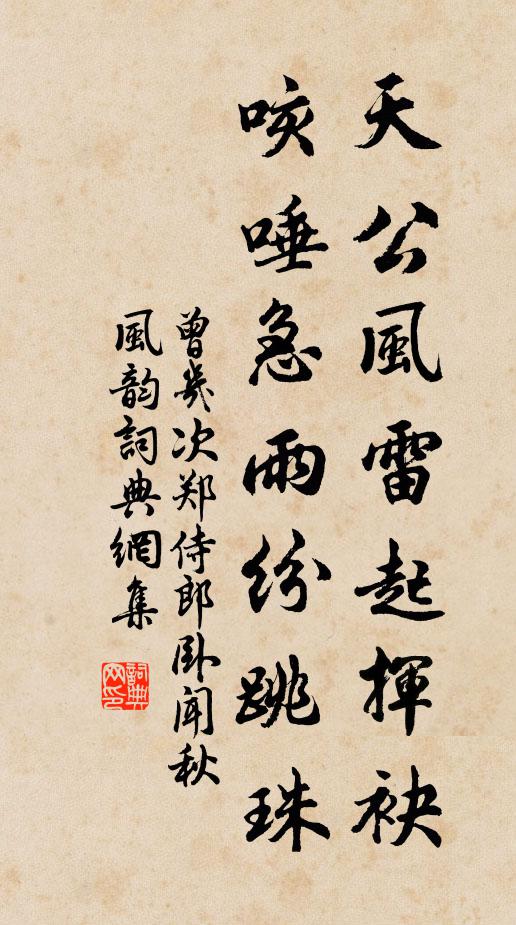 天公風雷起揮袂
咳唾急雨紛跳珠
曾幾次郑侍郎卧闻秋
風韵詞典網集
詞典网印